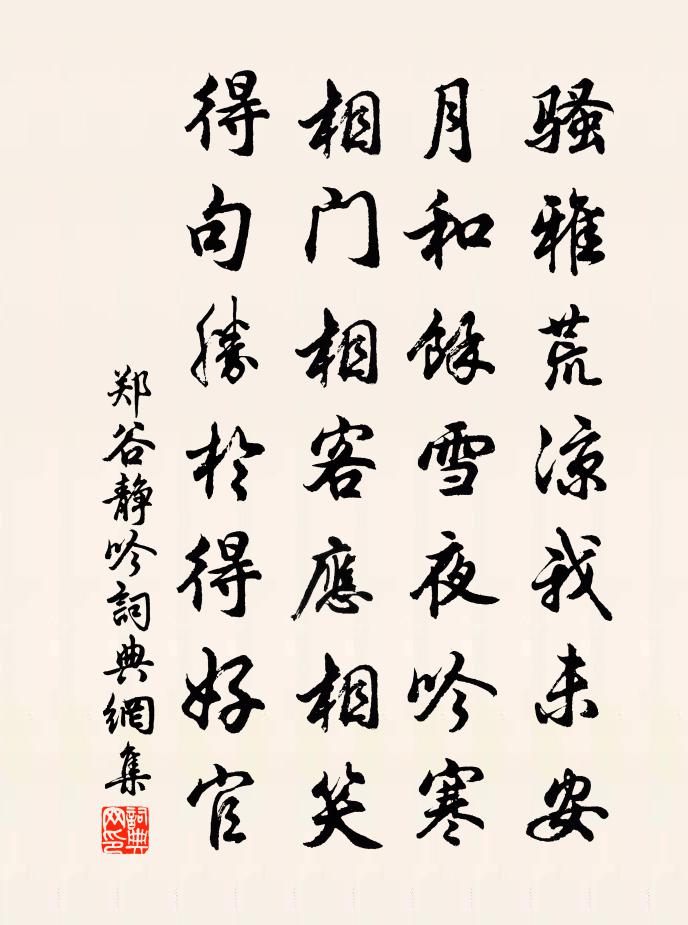 骚雅荒凉我未安
月和餘雪夜吟寒
相门相客應相笑
得句勝於得好官
郑谷静吟詞典網集
詞典网印